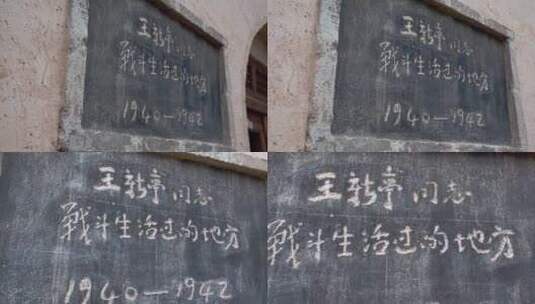 王新亭同志
戰斗生活过的地方
1940—1942
王新亭同志
戰斗生活过的地方
1940—1942
王新亭同志
戰斗生活过的地方
1940—1942
王新亭同志
戰斗生活过的地方